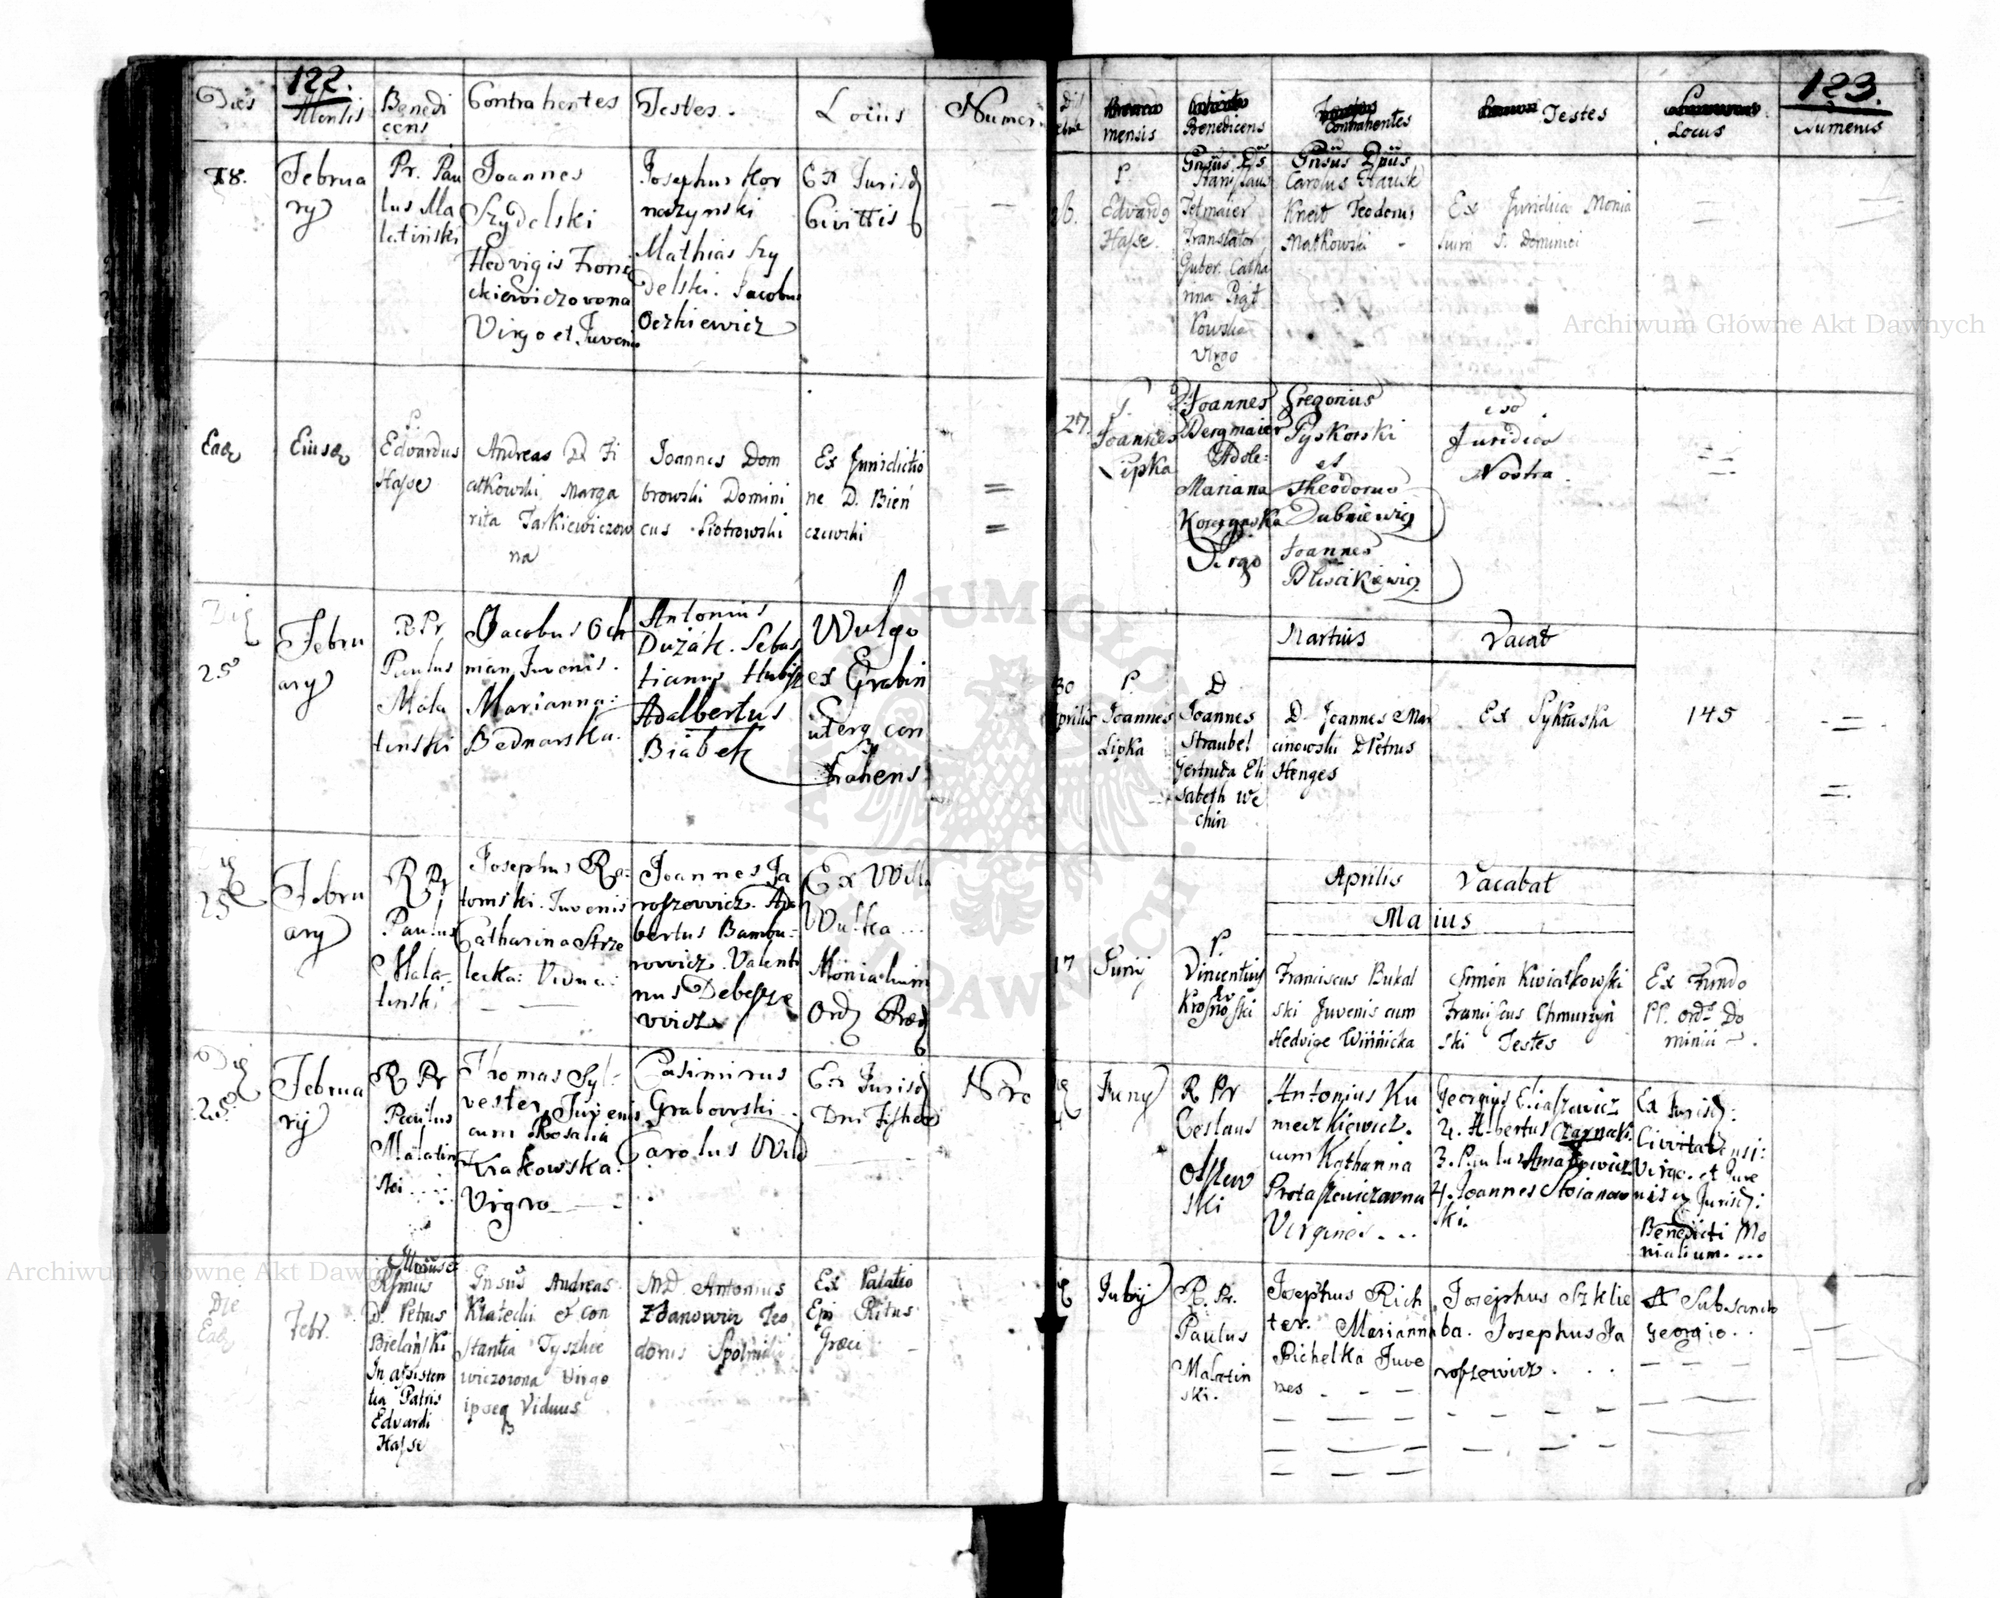 122.
Dies
Mensis
Benedi
cens
Contrahentes
Testes.
Locus
Numer.
18.
Februa
ry
Pr. Pau
lus Ma
latinski
Joannes
Szydelski
Hedvigis
ckiewiczovona
Virgo et Juvenis
Josephus Kor
naszynski
Mathias Szy
delski. Jacobus
Oczkiewicz
Ex Jurisd
Civittis
Ead
Eiusd
P.
Edvardus
Hasse
Andreas D. Fi
atkowski, Marga
rita Tarkiewiczow
na
Joannes Dom
browski Domini
cus Piotrowski
Ex Jurisdictio
ne D. Bień
czewski
Die
25
Febru
ary
R Pr
Paulus
Mala
tinski
Jacobus Och
man Juvenis.
Marianna
Bednarska.
Antonius
Dużak. Sebas
tianus
Adalbertus
Biabek
Wulgo
ex Grabin
uterq con
trahens
25
Febru
ary
R Pr
Paulus
Mala
tinski
Josephus Ra
tomski. Juvenis
Catharina Strze
lecka: Vidua:
Joannes Ja
roszowicz. Ada
bertus Bambu
rowicz. Valenti
nus Debesze
wicz
Ex Villa
Wulka ...
Monialium
Ord. Præd
Die
25.
Februa
rij
R Pr
Paulus
Malatin
ski
Thomas Syl
vester Juvenis
cum Rosalia
Krakowska.
Virgvo
Casimirus
Grabowski
Carolus Wild
Ex Jurisd
Dni Fisher
Nro
Die
Ead
Febr.
Illmus et
Rssmus
D. Petrus
Bielański
In assisten
tia Patris
Edvardi
Hasse
Gnsus Andreas
Kłatecki et Con
stantia Tyszkie
wiczowna Virgo
ipseq Viduus
MD Antonius
Zdanowicz Teo
dorus Spolnicki
Ex Palatio
Epi Ritus
Græci
123.
mensis
Benedicens
Contrahentes
Testes
Locus
Numerus
26.
P.
Edvardg
Hasse.
Gnsus
Stanislaus
Tetmaier
Translator
Guber. Catha
rina Piąt
kowska
Virgo
Gnsus
Carolus Hausk
Kneit Teodorus
Matkowski
Ex Juridica Monia
lium S. Dominici
27.
Joannes
Lipka
Joannes
Bergmaier
Adole:
Mariana
Virgo
Gregorius
Pyskorski
et
Theodorus
Dubniewicz
Joannes
Bliscikiewicz
Juridica
Nostra.
Martius
Vacat
30
Aprilis
P.
Joannes
Lipka
D
Joannes
Straubel
Gertruda Eli
sabeth We
chin
D. Joannes Mar
cinowski D Petrus
Henges
Ex Sykstuska
145
Aprilis
Vacabat
Maius
17
Junij
P.
Vincentius
Krosnowski
Franciscus Bukal
ski Juvenis cum
Hedvige Winnicka
Simon Kwiatkowski
Franciscus Chmurzyń
ski Testes
Ex Fundo
PP. ordis Do
minii
Juny
R Pr
Ceslaus
Olszew
ski
Antonius Ku
meczkiewicz.
cum Katharina
Protaszewiczowna
Virgines ...
Georgius Eliaszewicz
2. Albertus Czarnecki
3. Paulus Amaszewicz
4. Joannes Stoianow
ski.
Ex Jurisd:
Civitatensi:
Virgo. et Juve
nis ex Jurisd:
Benedicti Mo
nialium. ...
July
R. Pr.
Paulus
Malatin
ski.
Josephus Rich
ter. Marianna
Pichelka Juve
nes
Josephus Szklie
ba. Josephus Ja
roszewicz.
A Sub Sancto
Georgio.
Archiwum Główne Akt Dawnych
Archiwum Główne Akt Dawnych